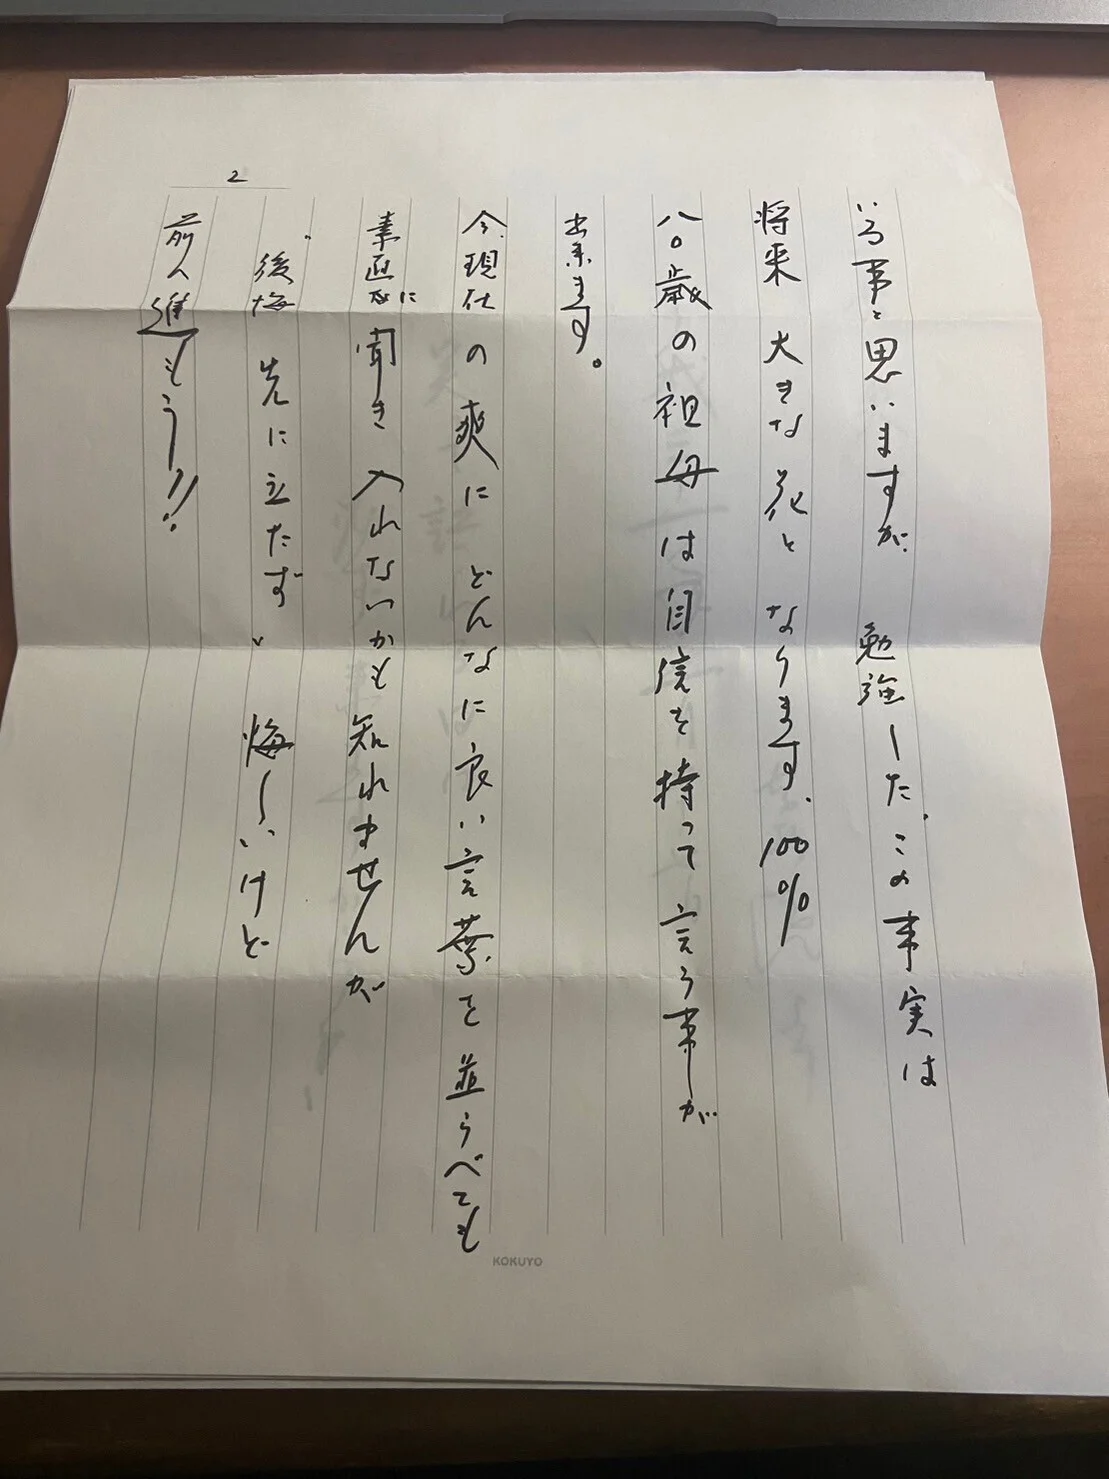 いる事と思いますが、勉強した、この事実は
将来 大きな花と なります、100%
八〇歳の祖母は自信を持って言う事が
出来ます。
今、現在の爽に どんなに良い言葉を並らべても
素直なに聞き入れないかも知れませんが
"後悔 先に立たず" 悔しいけど
前へ進もう!!
2
KOKUYO